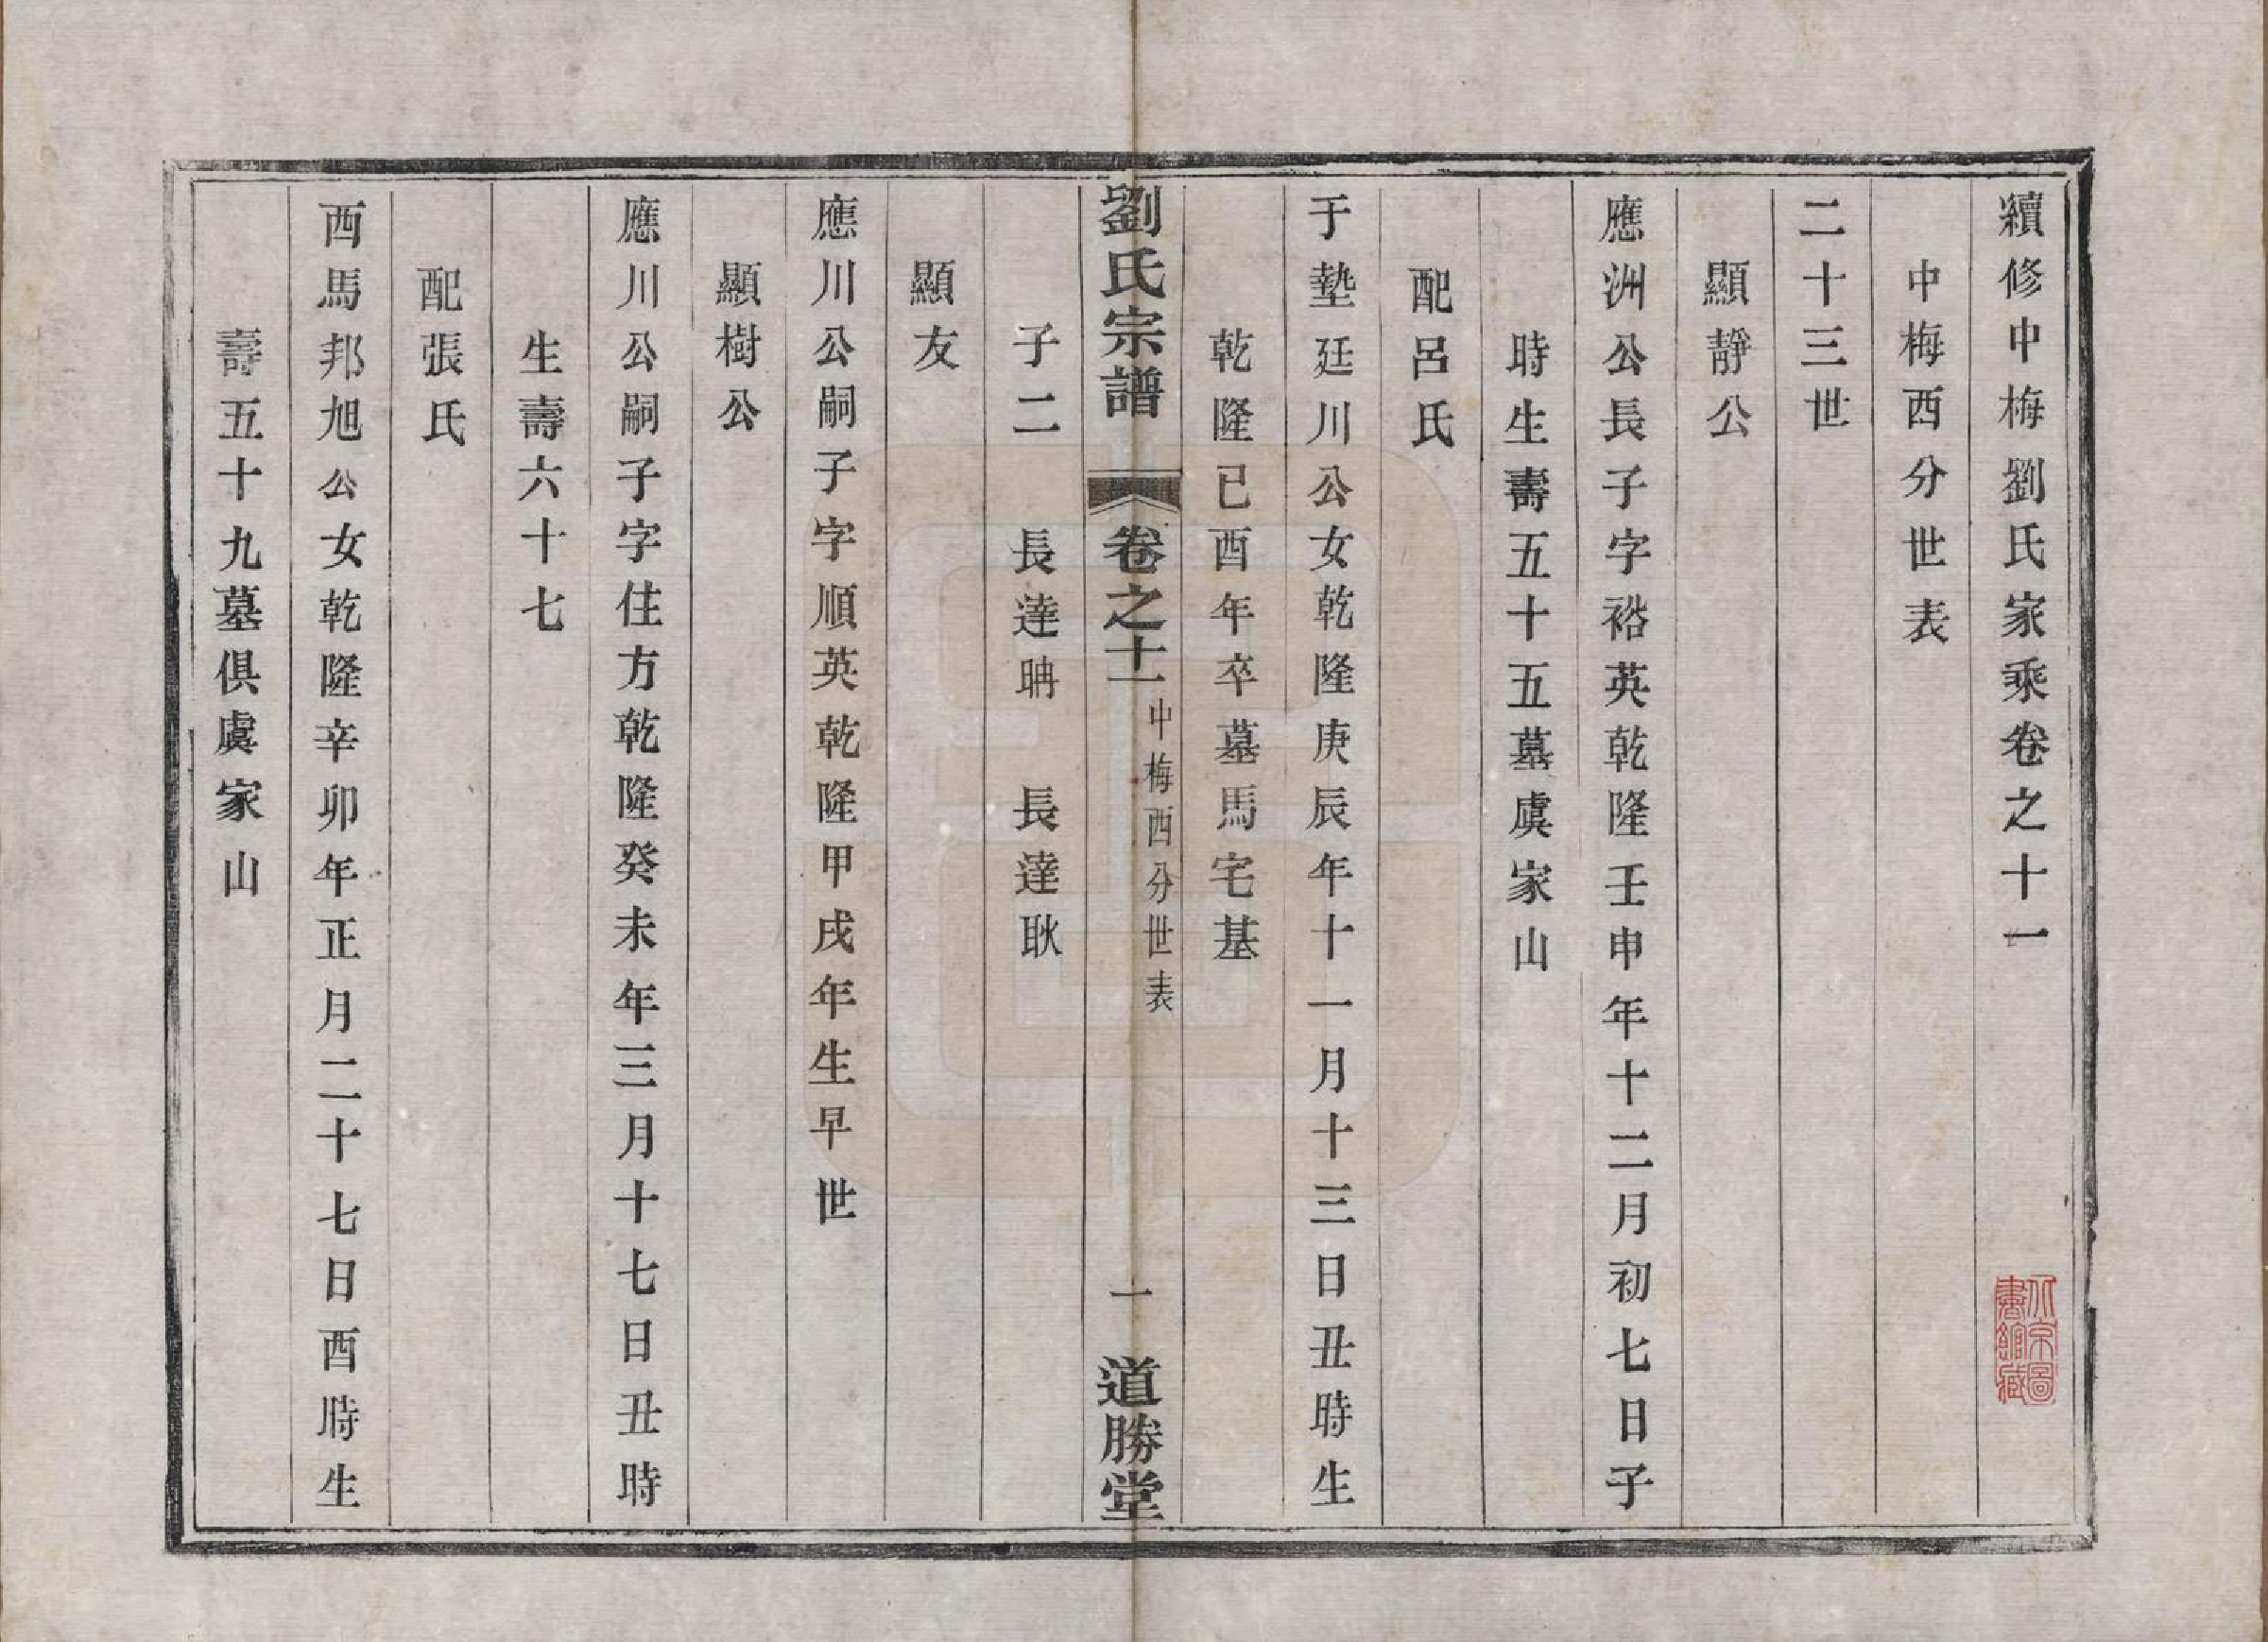 續修中梅劉氏家乘卷之十一
中梅西分世表
二十三世
顯靜公
應洲公長子字裕英乾隆壬申年十二月初七日子
時生壽五十五墓虞家山
配呂氏
于墊廷川公女乾隆庚辰年十一月十三日丑時生
乾隆已酉年卒墓馬宅基
劉氏宗譜
卷之十一
中梅西分世表
一
道勝堂
子二 長達聃 長達耿
顯友
應川公嗣子字順英乾隆甲戌年生早世
顯樹公
應川公嗣子字佳方乾隆癸未年三月十七日丑時
生壽六十七
配張氏
西馬邦旭公女乾隆辛卯年正月二十七日酉時生
壽五十九墓俱虞家山
北京圖
書館藏